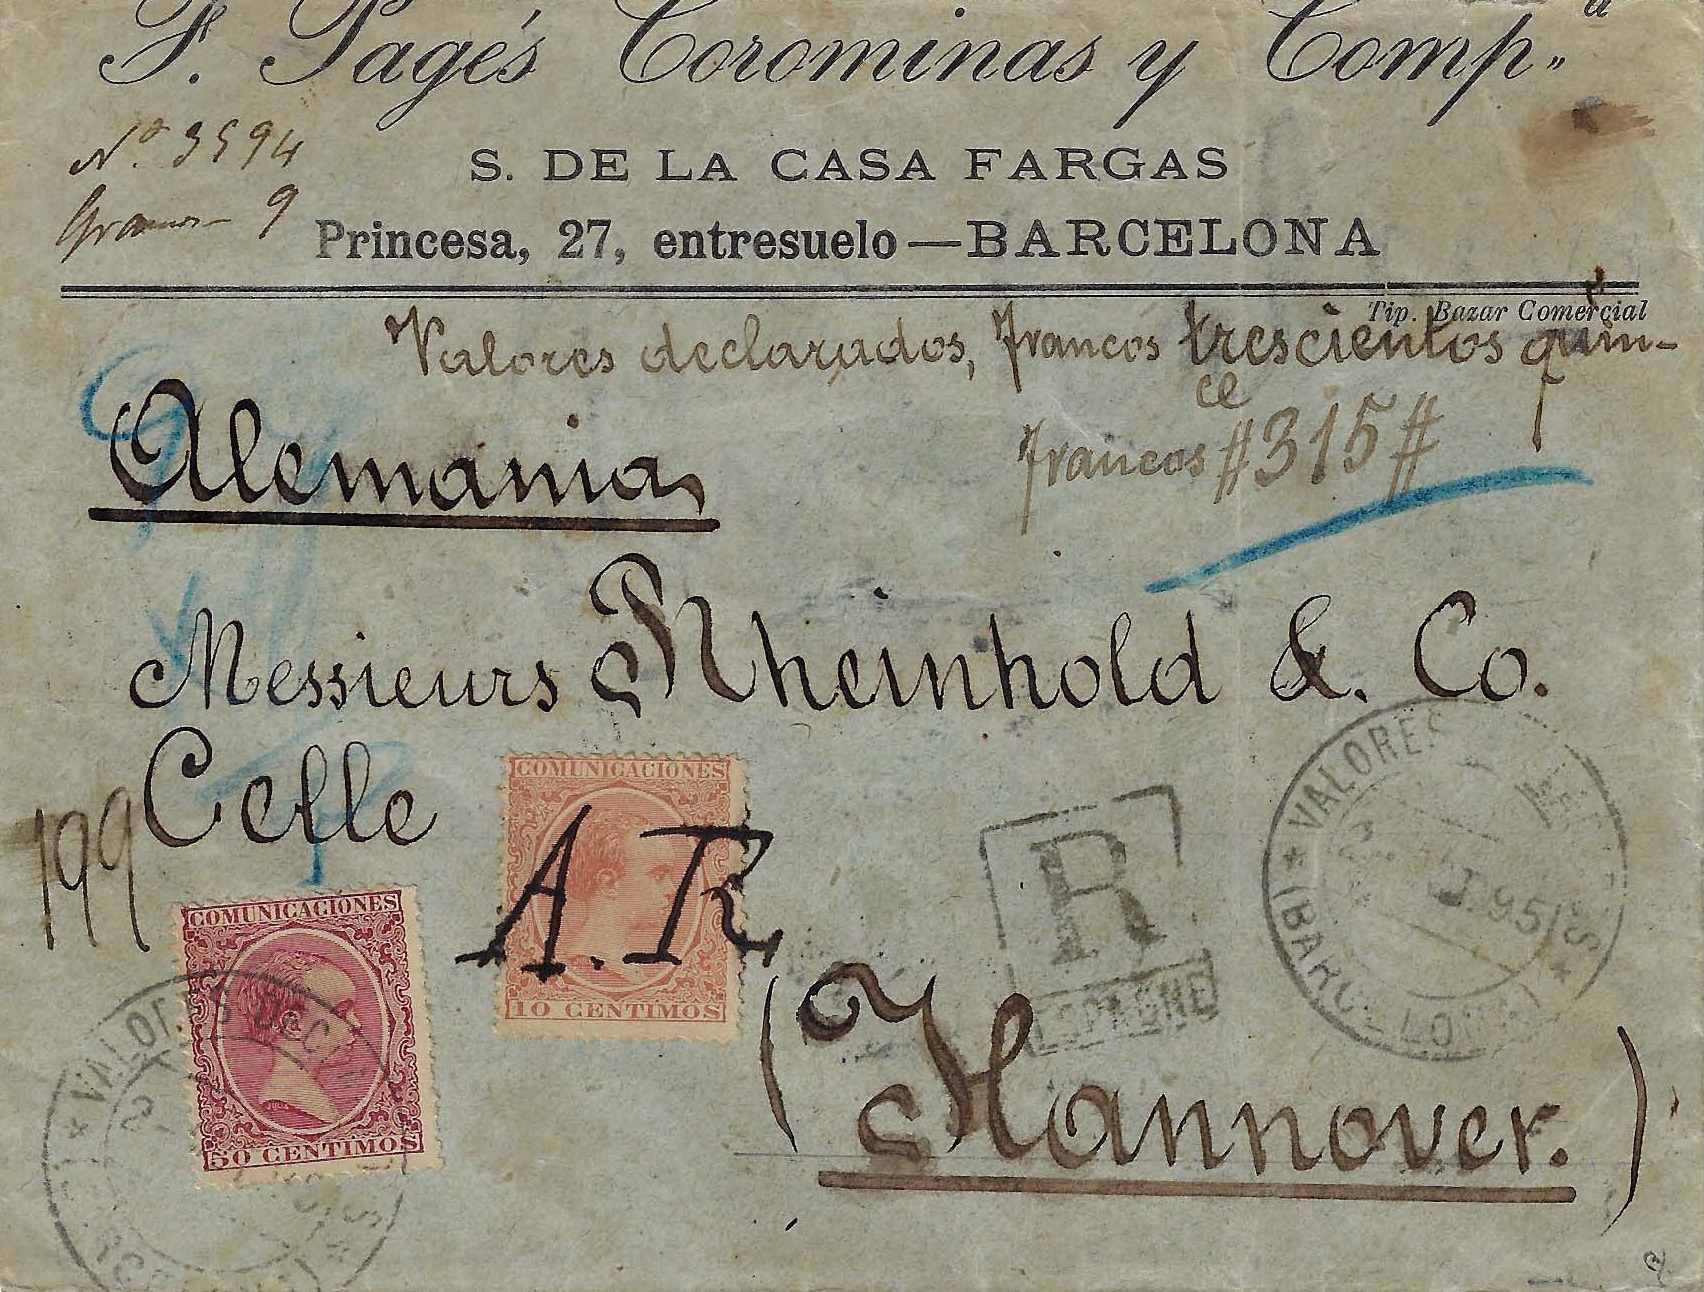 F. Pagés Corominas y Comp.ª
Nº 3594
S. DE LA CASA FARGAS
Gramos 9
Princesa, 27, entresuelo—BARCELONA
Tip. Bazar Comercial
Valores declarados, francos trescientos quin-
ce
francos #315#
Alemania,
Messieurs Rheinhold & Co.
Celle
199
COMUNICACIONES
10 CENTIMOS
A. R.
R
ESPAGNE
VALORES DECLARADOS
95
(BARCELONA)
COMUNICACIONES
50 CENTIMOS
VALORES DECLARADOS
(BARCELONA)
(Hannover.)